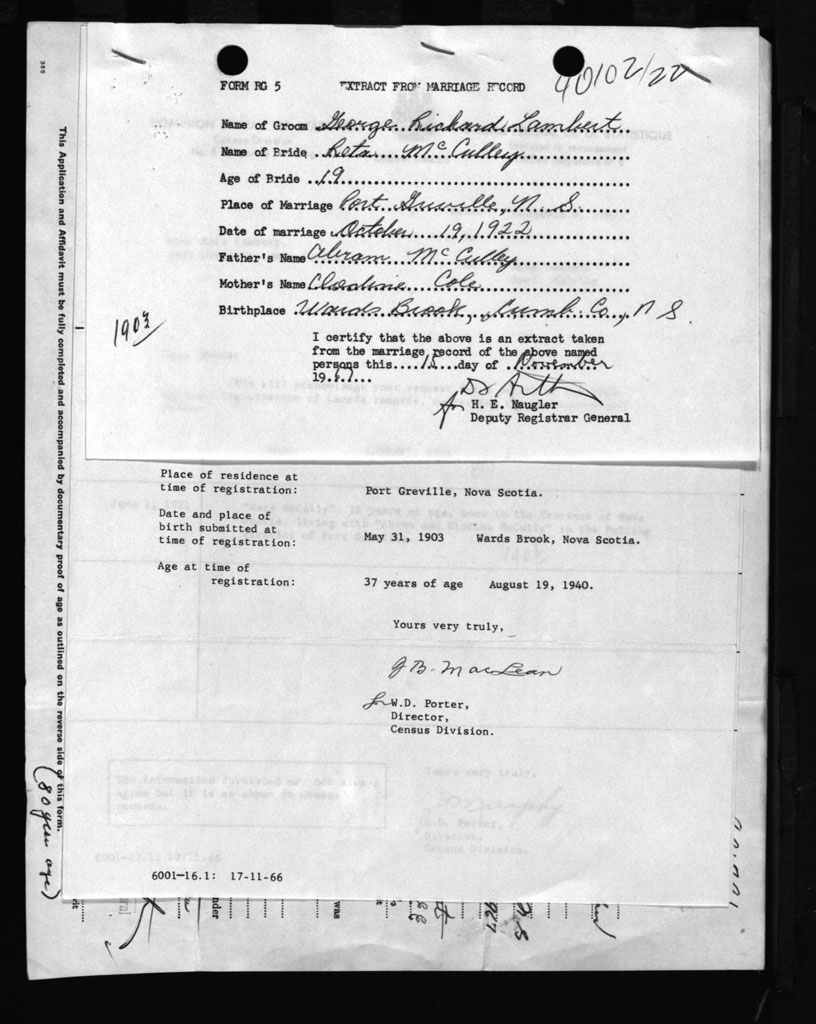 40102/22
FORM RG 5 EXTRACT FROM MARRIAGE RECORD
Name of Groom George Richard Lambert
Name of Bride Reta McCulley
Age of Bride 19
Place of Marriage Port Greville, N.S.
Date of marriage October 19, 1922
Father's Name Abram McCulley
Mother's Name Cole
Birthplace Wards Brook, Cumb. Co., N S.
1903
I certify that the above is an extract taken
from the marriage record of the above named
persons this....15...day of . November
19.67...
for H. E. Naugler
Deputy Registrar General
Place of residence at
time of registration: Port Greville, Nova Scotia.
Date and place of
birth submitted at
time of registration: May 31, 1903 Wards Brook, Nova Scotia.
Age at time of
registration: 37 years of age August 19, 1940.
Yours very truly,
J B. MacLean
for W.D. Porter,
Director,
Census Division.
The information furnished may not always
agree but it is as shown in Census
records.
Yours very truly,
W.D. Porter,
Director,
Census Division.
6001-16.1: 17-11-66
This Application and Affidavit must be fully completed and accompanied by documentary proof of age as outlined on the reverse side of this form.